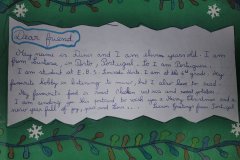 Dear friend
My name is and I am eleven years old. I am
from in Porto, Portugal. So I am Portuguese.
I am student at E.B.S. I am at the 6th grade. My
favourite hobby is listening to music, but I also love to read.
My favourite food is roast chicken and roast potatoes.
I am sending you this postcard to wish you a Merry Christmas and a
new year full of joy, and love. from Portugal